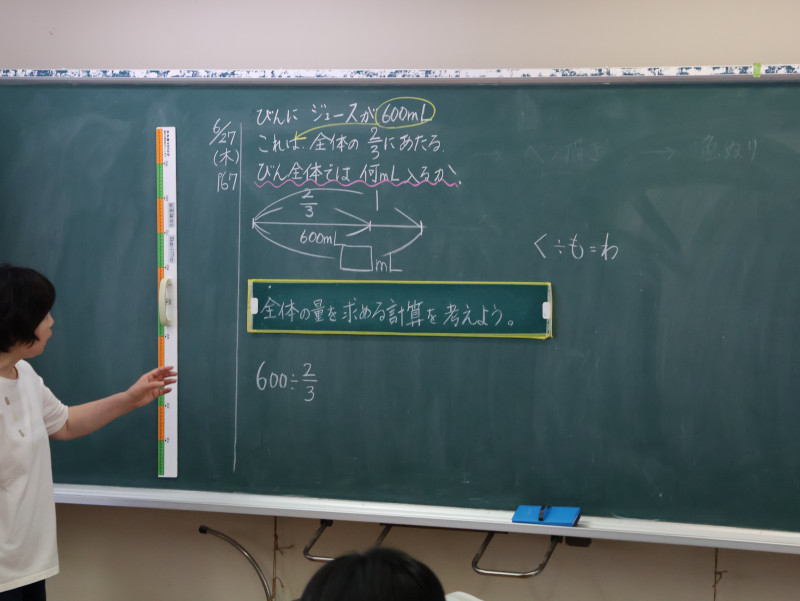 6/27
(木)
P67
びんに ジュースが 600mL
これは、全体の 2/3 にあたる。
びん全体では 何mL入るか。
2/3
1
600mL
□mL
く÷も=わ
全体の量を求める計算を考えよう。
600÷2/3